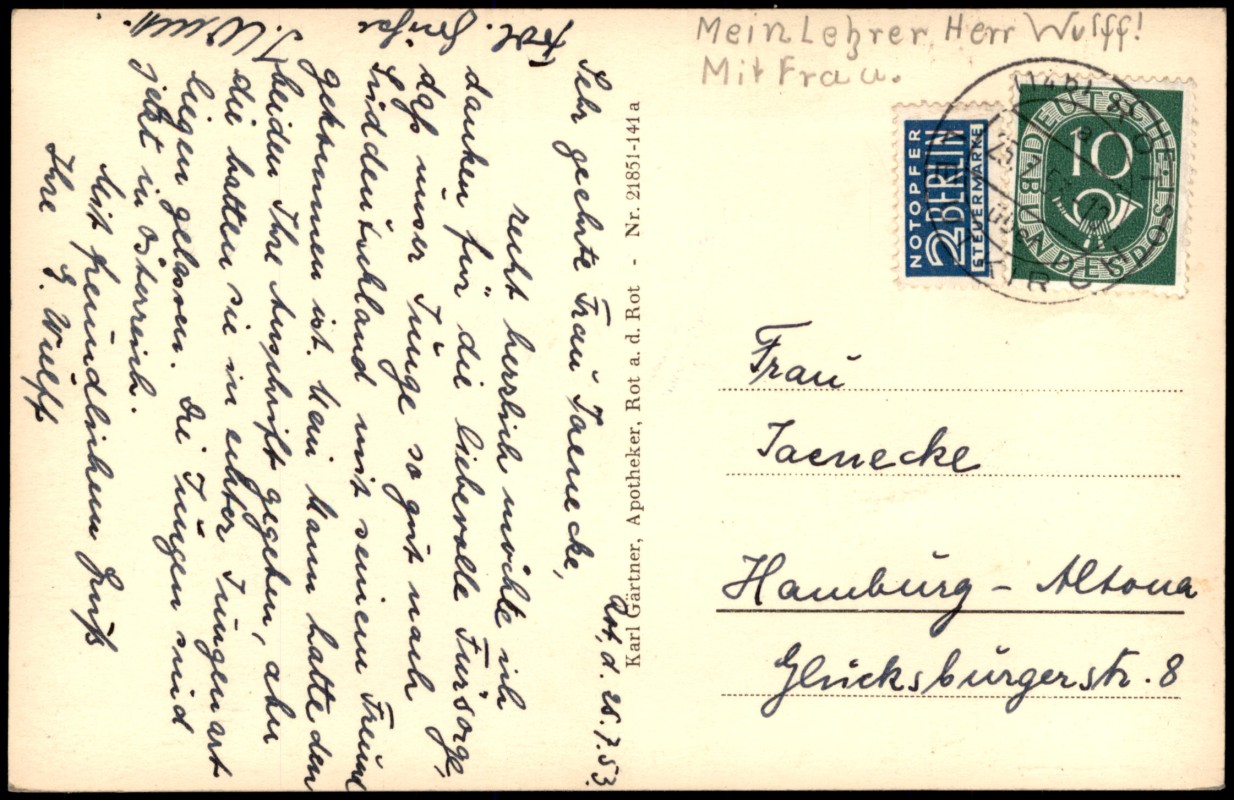 Mein Lehrer, Herr Wulff!
Mit Frau.
DEUTSCHE BUNDESPOST
10
NOTOPFER
2 BERLIN
STEUERMARKE
Frau
Jaenecke
Hamburg - Altona
Glücksburgerstr. 8
Karl Gärtner, Apotheker, Rot a. d. Rot - Nr. 21851-141 a
Rot, d. 25.7.53.
Sehr geehrte Frau Jaenecke,
recht herzlich möchte ich
danken für die liebevolle Fürsorge,
daß unser Junge so gut nach
Süddeutschland mit seinem Freund
gekommen ist. Mein Mann hatte den
beiden Ihre Anschrift gegeben, aber
die hatten sie in echter Jungenart
liegen gelassen. Die Jungen sind
jetzt in Österreich.
Mit freundlichem Gruß
Ihre G. Wulff
frdl. Grüße
J. Wulff.